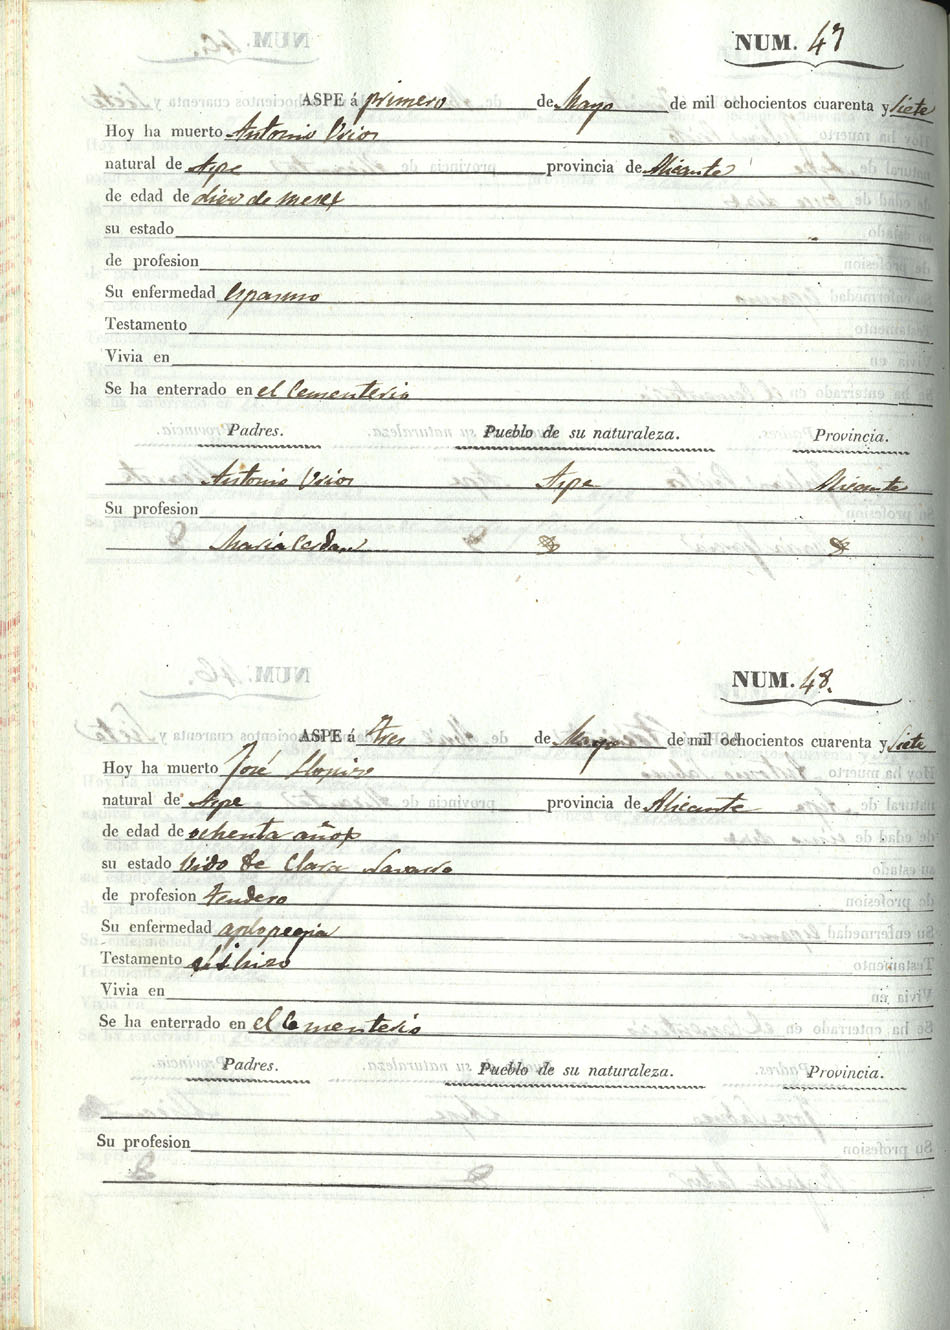 NUM. 47
ASPE á primero de Mayo de mil ochocientos cuarenta y Siete
Hoy ha muerto Antonio
natural de Aspe provincia de Alicante
de edad de diez de meses
su estado
de profesion
Su enfermedad Espasmo
Testamento
Vivia en
Se ha enterrado en el Cementerio
Padres. Pueblo de su naturaleza. Provincia.
Antonio Aspe Alicante
Su profesion
Maria Cerdan
NUM. 48.
ASPE á Tres de Mayo de mil ochocientos cuarenta y Siete
Hoy ha muerto José Llopis
natural de Aspe provincia de Alicante
de edad de ochenta años
su estado Vido de Clara Navarro
de profesion tendero
Su enfermedad
Testamento hizo
Vivia en
Se ha enterrado en el Cementerio
Padres. Pueblo de su naturaleza. Provincia.
Su profesion